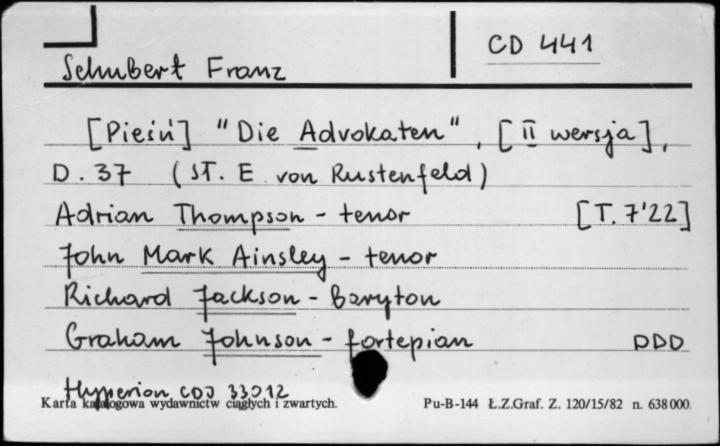 CD 441
Schubert Franz
[Pieśń] "Die Advokaten", [II wersja],
D. 37 (sł. E von Rustenfeld)
Adrian Thompson - tenor [T. 7'22]
John Mark Ainsley - tenor
Richard Jackson - baryton
Graham Johnson - fortepian DDD
Hyperion CDJ 33012
Karta katalogowa wydawnictw ciągłych i zwartych. Pu-B-144 Ł.Z.Graf. Z. 120/15/82 n. 638000.